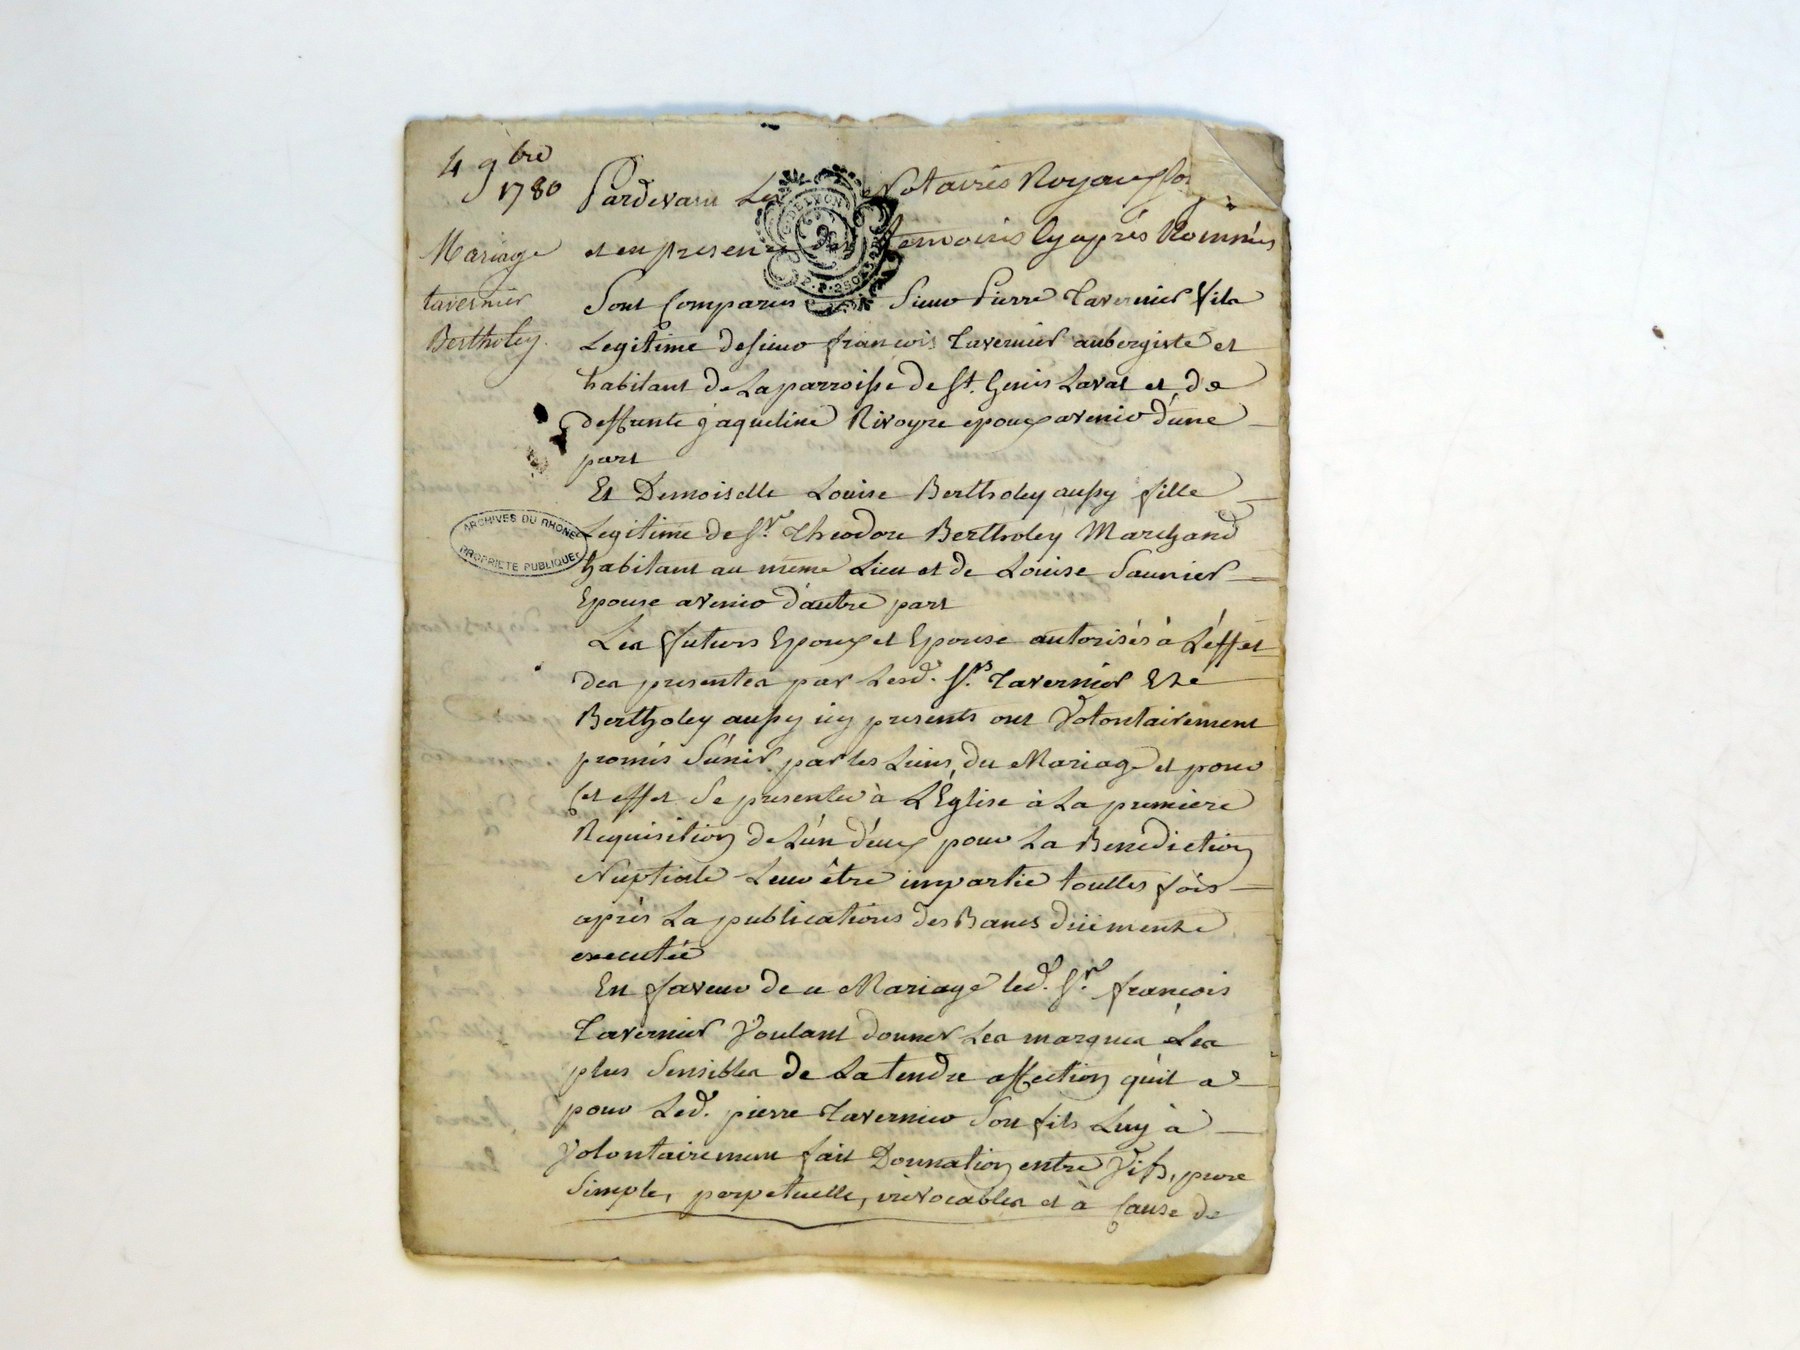 4 9bre
1780
Mariage
tavernier
Bertholey.
Pardevant Les Notaires Royaux
et en presence des temoins Cy après Nommés
Sont Comparus Sieur Pierre Tavernier fils
Legitime de sieur françois Tavernier aubergiste et
habitant de La parroisse de St. Genis Laval et de
deffunte jaqueline Rivoyre epoux avenir d'une
part
Et Demoiselle Louise Bertholey aussy fille
Legitime de Sr. Theodore Bertholey Marchand
habitant au même Lieu et de Louise Saunier
Epouse avenir d'autre part
Les futurs Epoux et Epouse autorisés à L'effet
des presentes par Lesd. Srs. Tavernier Et
Bertholey aussy icy presents ont Volontairement
promis S'unir par les Liens du Mariage et pour
Cet effet Se presenter à L'Eglise à La premiere
Requisition de L'un d'eux pour La Benediction
Nuptiale Leur être impartie touttes fois
après La publications des Bancs düement
executée
En faveur de ce Mariage led. Sr. françois
Tavernier Voulant donner Les marques Les
plus Sensibles de La tendre affection qu'il a
pour Led. pierre Tavernier Son fils Luy à
Volontairement fait Donnation entre Vifs, pure
Simple, perpetuelle, irrevocables et à Cause de
ARCHIVES DU RHONE
PROPRIETE PUBLIQUE
G. DE LYON